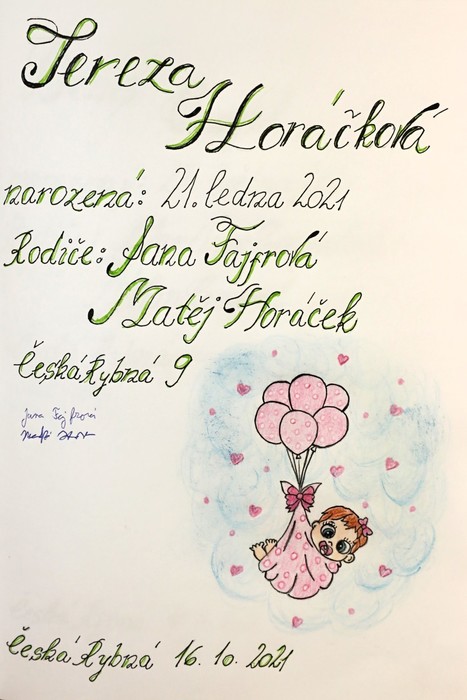 Tereza
Horáčková
narozená: 21. ledna 2021
Rodiče: Jana Fajfrová
Matěj Horáček
Česká Rybná 9
Jana Fajfrová
Česká Rybná 16. 10. 2021